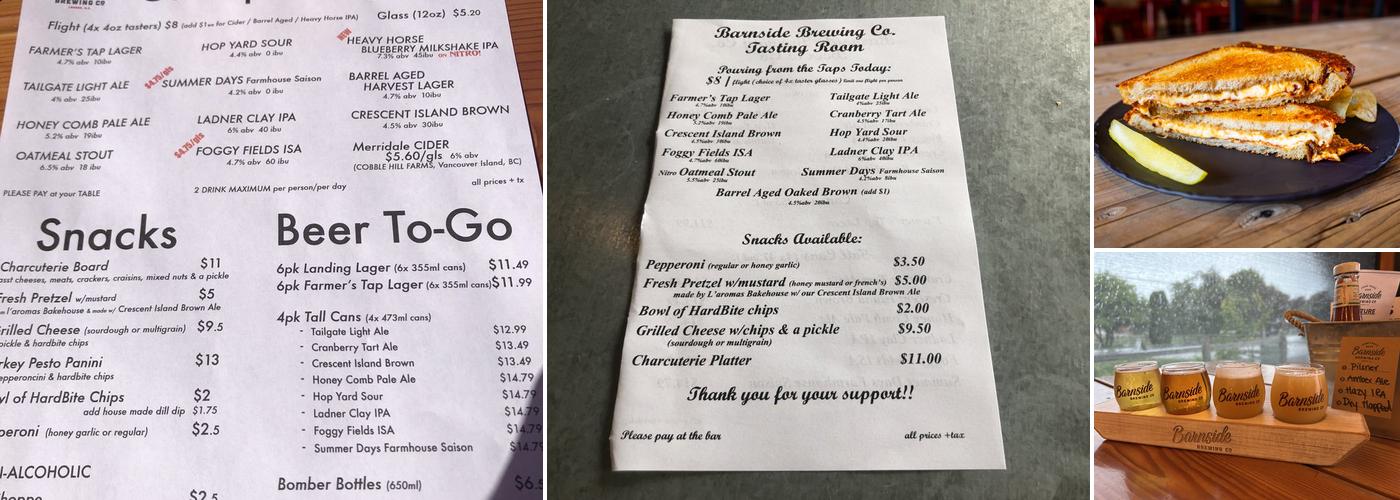 BREWING CO.
Flight (4x 4oz tasters) $8 (add $1ea for Cider / Barrel Aged / Heavy Horse IPA)
Glass (12oz) $5.20
FARMER'S TAP LAGER
4.7% abv 10ibu
HOP YARD SOUR
4.4% abv 0 ibu
NEW
HEAVY HORSE
BLUEBERRY MILKSHAKE IPA
7.3% abv 45ibu on NITRO!
TAILGATE LIGHT ALE
4% abv 25ibu
$4.75/gls
SUMMER DAYS Farmhouse Saison
4.2% abv 0 ibu
BARREL AGED
HARVEST LAGER
4.7% abv 10ibu
HONEY COMB PALE ALE
5.2% abv 19ibu
LADNER CLAY IPA
6% abv 40 ibu
CRESCENT ISLAND BROWN
4.5% abv 30ibu
OATMEAL STOUT
6.5% abv 18 ibu
$4.75/gls
FOGGY FIELDS ISA
4.7% abv 60 ibu
Merridale CIDER
$5.60/gls 6% abv
(COBBLE HILL FARMS, Vancouver Island, BC)
PLEASE PAY at your TABLE
2 DRINK MAXIMUM per person/per day
all prices + tx
Snacks
Charcuterie Board $11
asst cheeses, meats, crackers, craisins, mixed nuts & a pickle
Fresh Pretzel w/mustard $5
l'aromas Bakehouse & made w/ Crescent Island Brown Ale
rilled Cheese (sourdough or multigrain) $9.5
pickle & hardbite chips
rkey Pesto Panini $13
epperoncini & hardbite chips
wl of HardBite Chips $2
add house made dill dip $1.75
peroni (honey garlic or regular) $2.5
N-ALCOHOLIC
$2.5
Beer To-Go
6pk Landing Lager (6x 355ml cans) $11.49
6pk Farmer's Tap Lager (6x 355ml cans) $11.99
4pk Tall Cans (4x 473ml cans)
- Tailgate Light Ale $12.99
- Cranberry Tart Ale $13.49
- Crescent Island Brown $13.49
- Honey Comb Pale Ale $14.79
- Hop Yard Sour $14.79
- Ladner Clay IPA $14.79
- Foggy Fields ISA $14.79
- Summer Days Farmhouse Saison $14.79
Bomber Bottles (650ml) $6.5
Barnside Brewing Co.
Tasting Room
Pouring from the Taps Today:
$8 / flight (choice of 4x taster glasses) limit one flight per person
Farmer's Tap Lager
4.7%abv 10ibu
Tailgate Light Ale
4%abv 25ibu
Honey Comb Pale Ale
5.2%abv 19ibu
Cranberry Tart Ale
4.5%abv 17ibu
Crescent Island Brown
4.5%abv 30ibu
Hop Yard Sour
4.4%abv 20ibu
Foggy Fields ISA
4.7%abv 60ibu
Ladner Clay IPA
6%abv 40ibu
Nitro Oatmeal Stout
5.5%abv 25ibu
Summer Days Farmhouse Saison
4.2%abv 8ibu
Barrel Aged Oaked Brown (add $1)
4.5%abv 20ibu
Snacks Available:
Pepperoni (regular or honey garlic) $3.50
Fresh Pretzel w/mustard (honey mustard or french's) $5.00
made by L'aromas Bakehouse w/ our Crescent Island Brown Ale
Bowl of HardBite chips $2.00
Grilled Cheese w/chips & a pickle $9.50
(sourdough or multigrain)
Charcuterie Platter $11.00
Thank you for your support!!
Please pay at the bar
all prices +tax
Barnside
BREWING CO
Barnside
BREWING CO
Barnside
BREWING CO
Barnside
BREWING CO
Barnside
BREWING CO
Barnside
Barnside
BREWING CO
Pilsner
Amber Ale
Hazy IPA
Dry Hopped